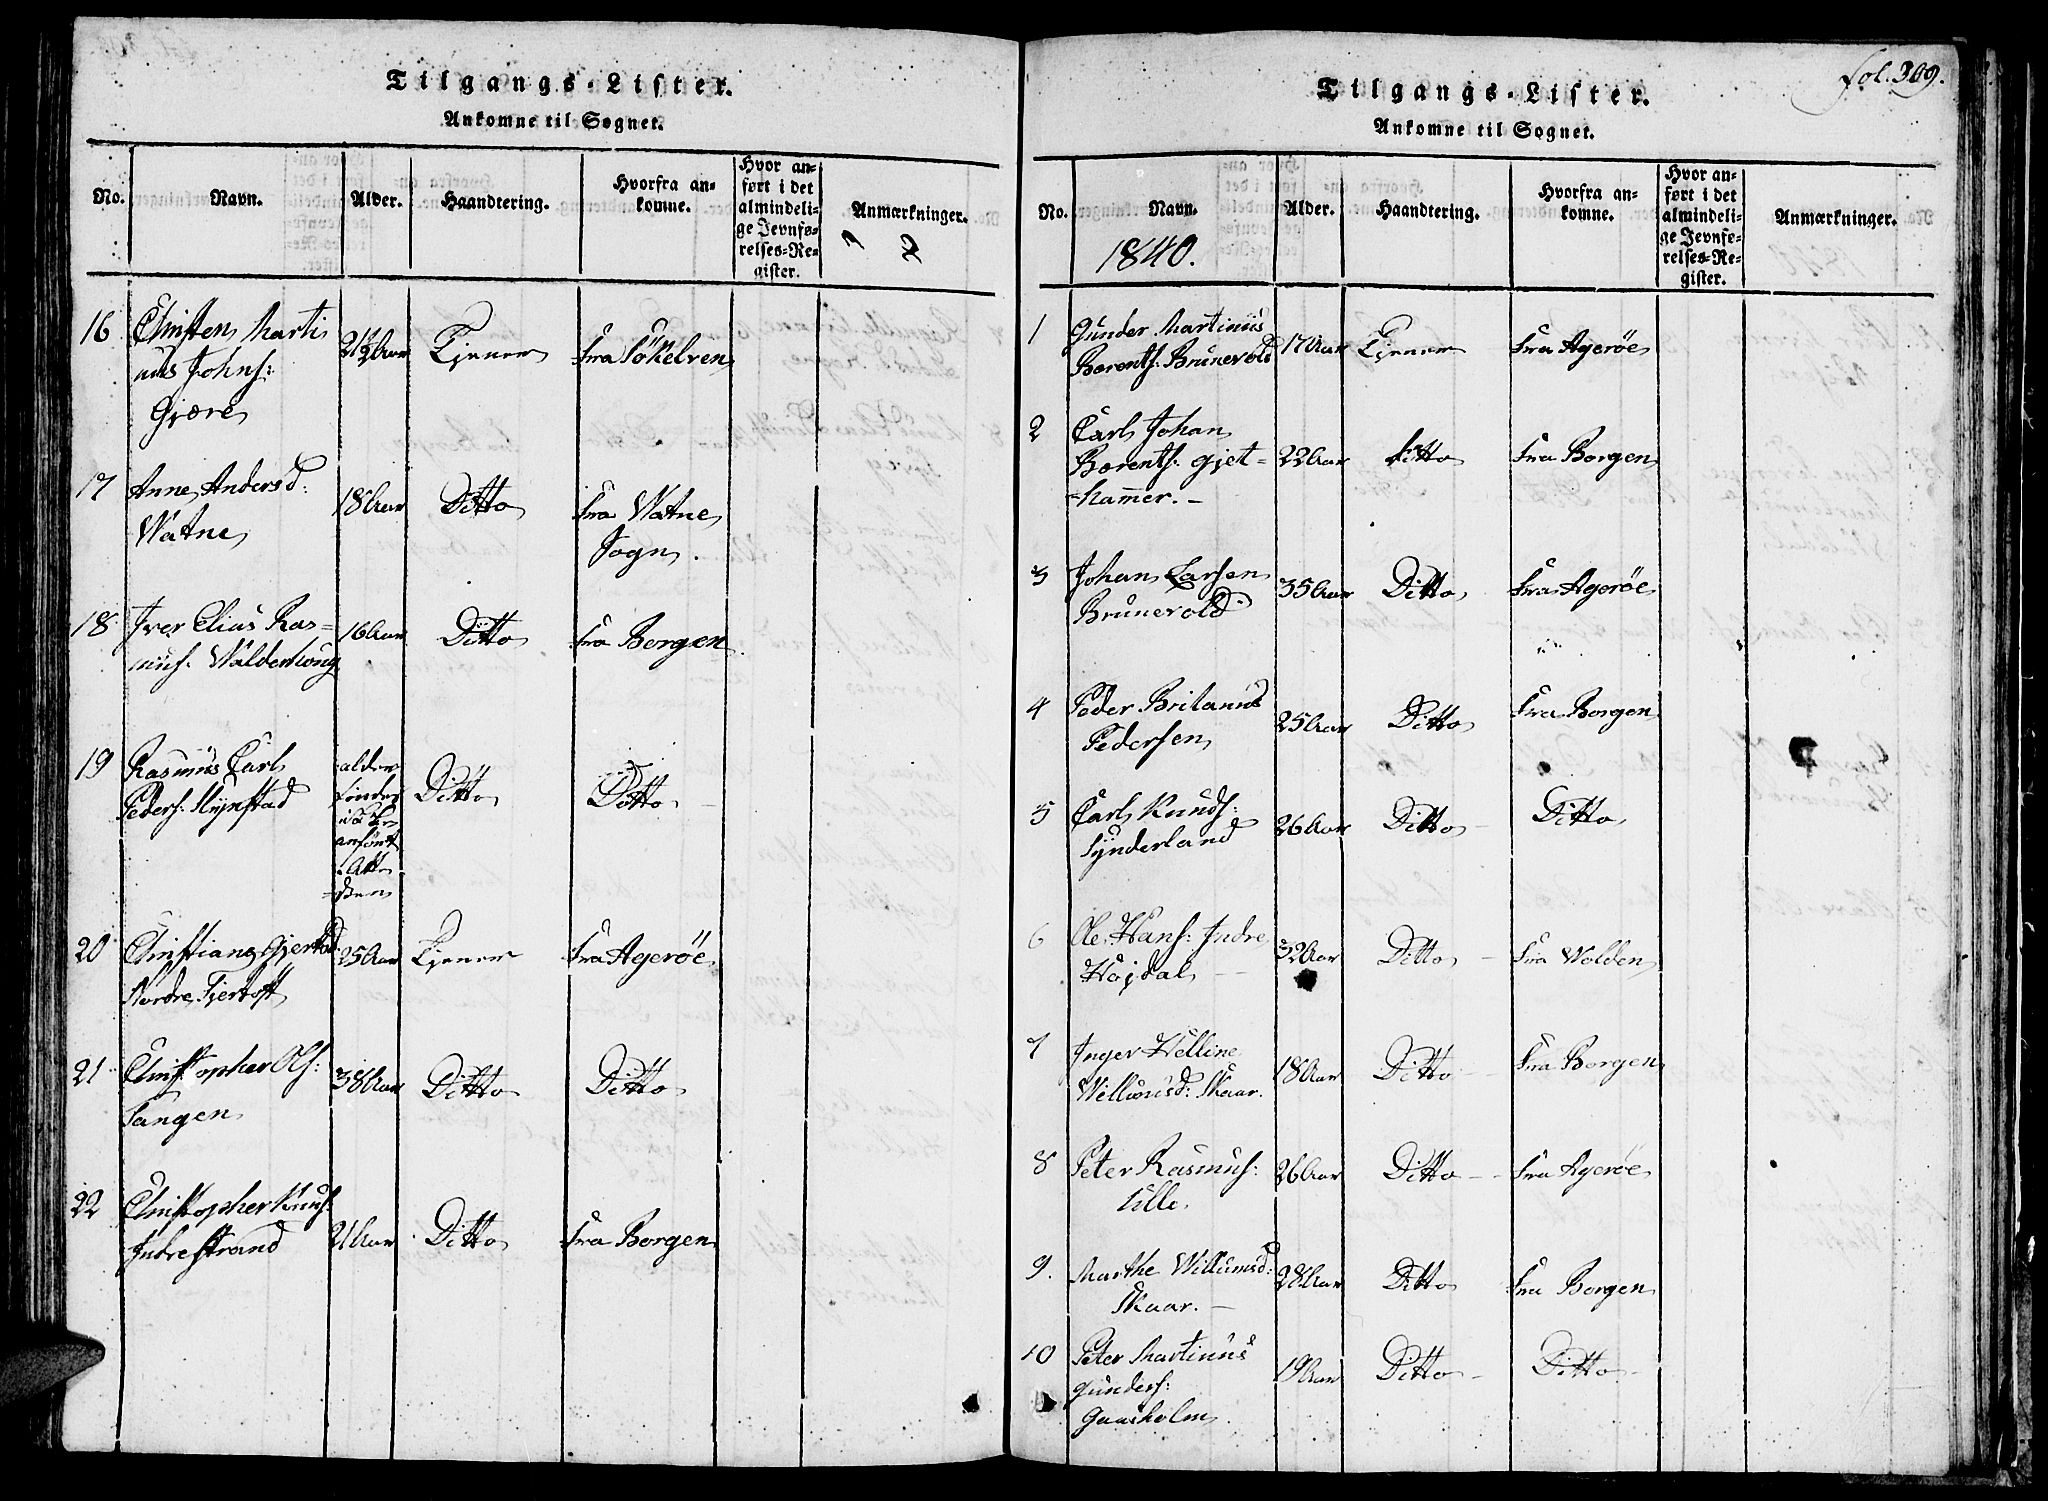 Tilgangs-Lister.
Ankomne til Sognet.
No. Navn. Alder. Haandtering. Hvorfra an-
komne. Hvor an-
ført i det
almindeli-
ge Jevnfø-
relses-Re-
gister. Anmærkninger.
16 Christen Marti
nus Johns:
Gjære 21½ Aar Tjener fra Sökelven
17 Anne Andersd:
Watne 18 Aar Ditto fra Watne
Sogn.
18 Iver Elias Ras-
mus: Walderhoug 16 Aar Ditto fra Borgen
19 Rasmus Carl
Peders: Slynstad alder
findes
anført
Atte-
sten Ditto Ditto
20 Christiane Gjertsd:
Nordre Fjertoft 25 Aar Tjener fra Agerøe
21 Christopher Ols:
Tangen 38 Aar Ditto Ditto
22 Christopher Knus:
Indrestrand 21 Aar Ditto fra Borgen
fol. 309.
Tilgangs-Lister.
Ankomne til Sognet.
No. Navn. Alder. Haandtering. Hvorfra an-
komne. Hvor an-
ført i det
almindeli-
ge Jevnfø-
relses-Re-
gister. Anmærkninger.
1840.
1 Gunder Martinus
Bærents: Brunevold 17 Aar Tjener fra Agerøe
2 Carl Johan
Bærents: Gjet-
hammer. 22 Aar ditto fra Borgen
3 Johan Larsen
Brunevold 35 Aar Ditto fra Agerøe
4 Peder Britanus
Pedersen 25 Aar Ditto fra Borgen
5 Carl Knuds:
Synderland 26 Aar Ditto Ditto
6 Ole Hans: Indre
Höjdal 32 Aar Ditto fra Wolden
7 Inger Helline
Willumsd: Skaar. 18 Aar Ditto fra Borgen
8 Peter Rasmus:
Ulle 26 Aar Ditto fra Agerøe
9. Marthe Willumsd:
Skaar. 28 Aar Ditto fra Borgen
10 Peter Martinus
Gunders:
Gaasholm 19 Aar Ditto Ditto